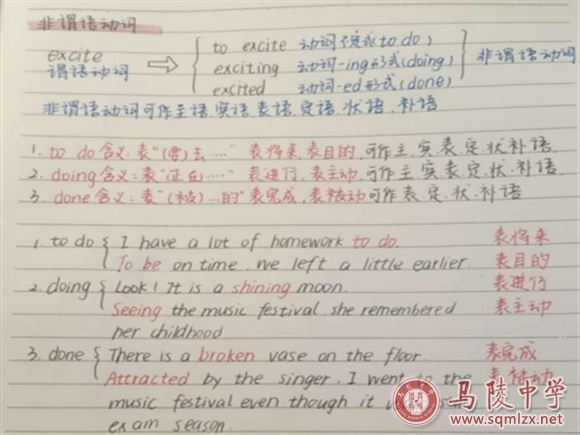 非谓语动词
excite
谓语动词
to excite 动词不定式(to do)
exciting 动词-ing形式(doing)
excited 动词-ed形式(done)
非谓语动词
非谓语动词可作主语、宾语、表语、定语、状语、补语
1. to do 含义:表"(要)去……" 表将来,表目的,可作主、宾、表、定、状、补语.
2. doing 含义:表"正在……" 表进行,表主动,可作主、宾、表、定、状、补语
3. done 含义:表"(被)…的" 表完成,表被动可作表、定、状、补语
1. to do { I have a lot of homework to do. 表将来
To be on time, we left a little earlier. 表目的
2. doing { Look! It is a shining moon. 表进行
Seeing the music festival, she remembered 表主动
her childhood
3. done { There is a broken vase on the floor. 表完成
Attracted by the singer, I went to the 表被动
music festival even though it
exam season.
马陵中学
www.sqmlzx.net